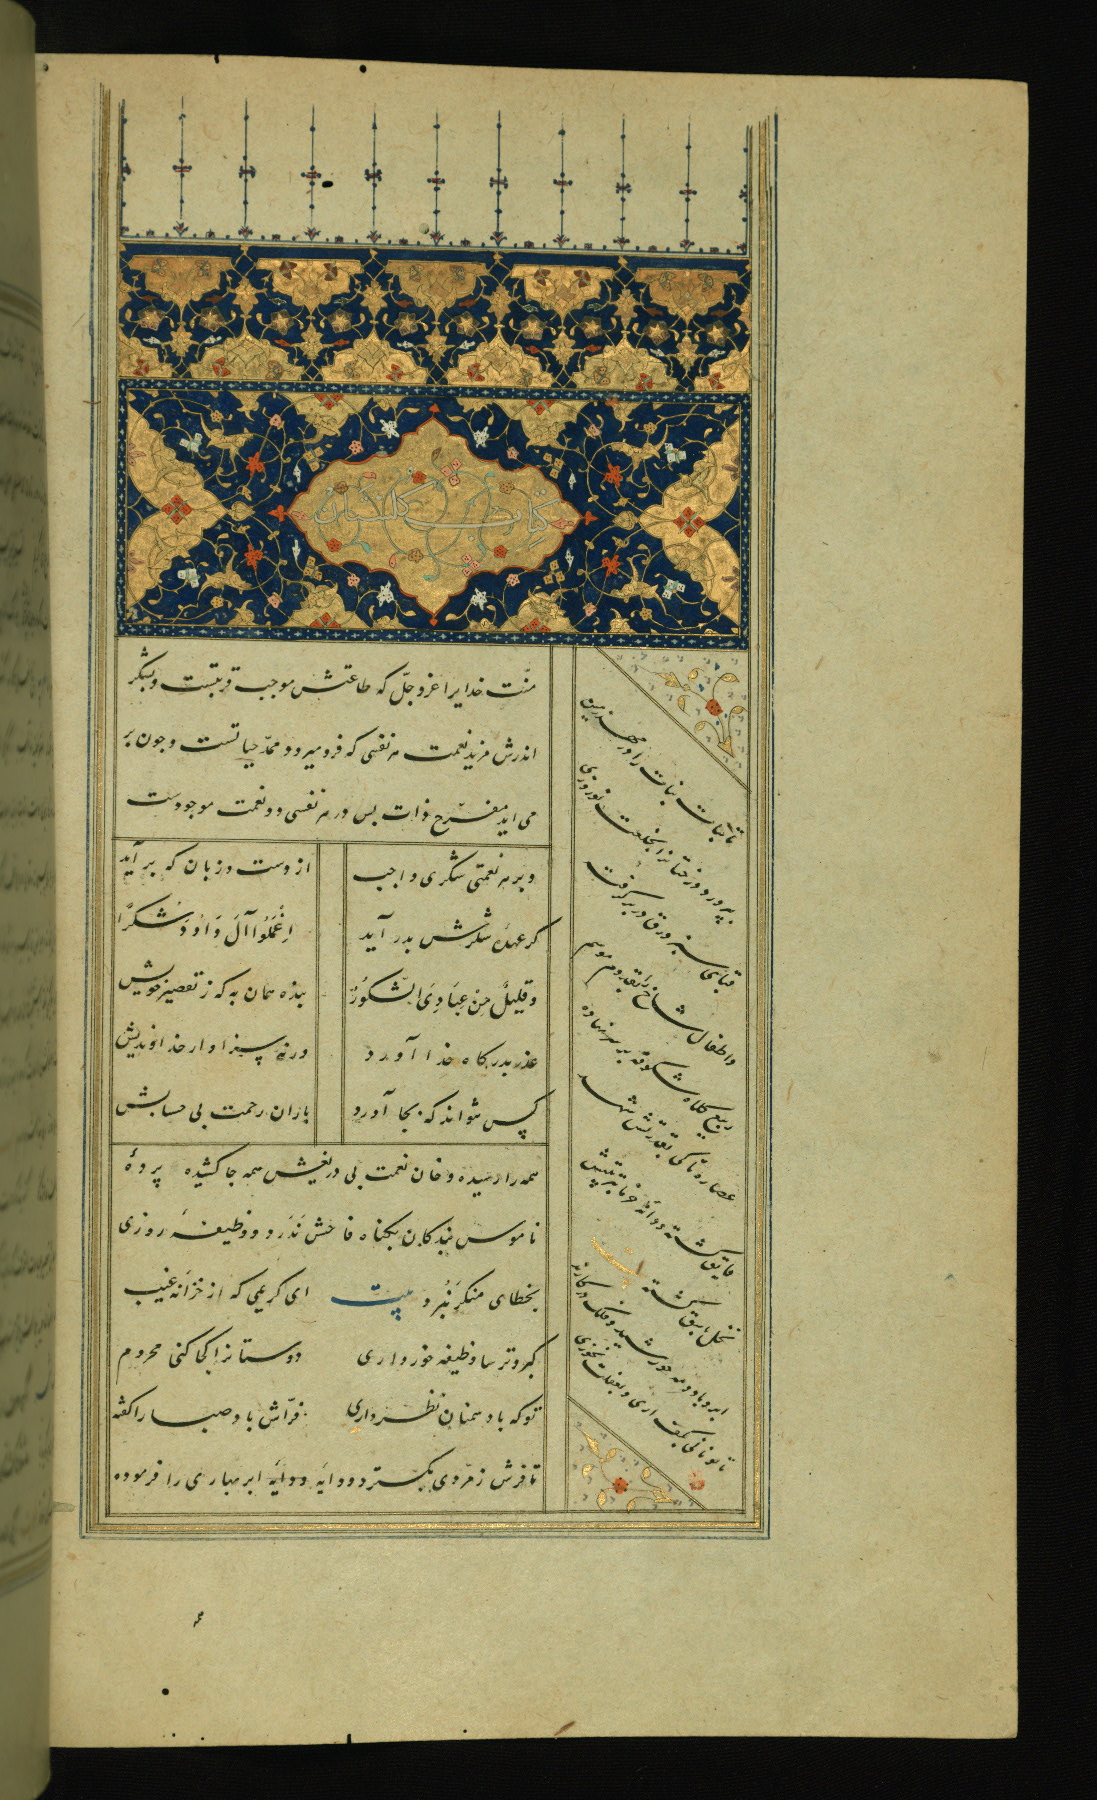 کتاب گلستان
منّت خدایرا عزوجلّ که طاعتش موجب قربتست وبشکر
اندرش مزید نعمت هر نفسی که فرو میرود ممدّ حیاتست وچون بر
می اید مفرّح ذات پس در هر نفسی دو نعمت موجودست
وبر هر نعمتی شکری واجب
از دست وزبان که بر آید
کز عهدهٔ شکرش بدر آید
اِعْمَلُوا آلَ دَاوُدَ شُکرًا
وَقَلِیلٌ مِنْ عِبَادِیَ الشَّکُورُ
بنده همان به که ز تقصیر خویش
عذر بدرکاه خدا آورد
ورنه سزاوار خداوندیش
کس نتواند که بجا آورد
باران رحمت بی حسابش
همه را رسیده وخان نعمت بی دریغش همه جا کشیده پردهٔ
ناموس بندکان بکناه فاحش نَدَرد ووظیفهٔ روزی
بخطای منکر نَبُرد بیت ای کریمی که از خزانهٔ غیب
کبر وترسا وظیفه خور داری
دوستانرا کجا کنی محروم
توکه با دشمنان نظر داری
فرّاش باد صبا را کفته
تا فرش زمردی بکسترد ودایهٔ ابر بهاری را فرموده
تا بنات نبات را در مهد زمین
بپرورد ودرختانرا بخلعت نوروزی
قبای سبز ورق در بر گرفت
واطفال شاخ را بقدوم موسم
ربیع کلاه شکوفه بر سر نهاده
عصاره تاکی بقدرتش شهد
فایق گشته ودانهٔ خرما بتربیتش
نخل باسق گشته
ابر وباد ومه وخورشید وفلک در کارند
تا تو نانی بکف اری وبغفلت نخوری